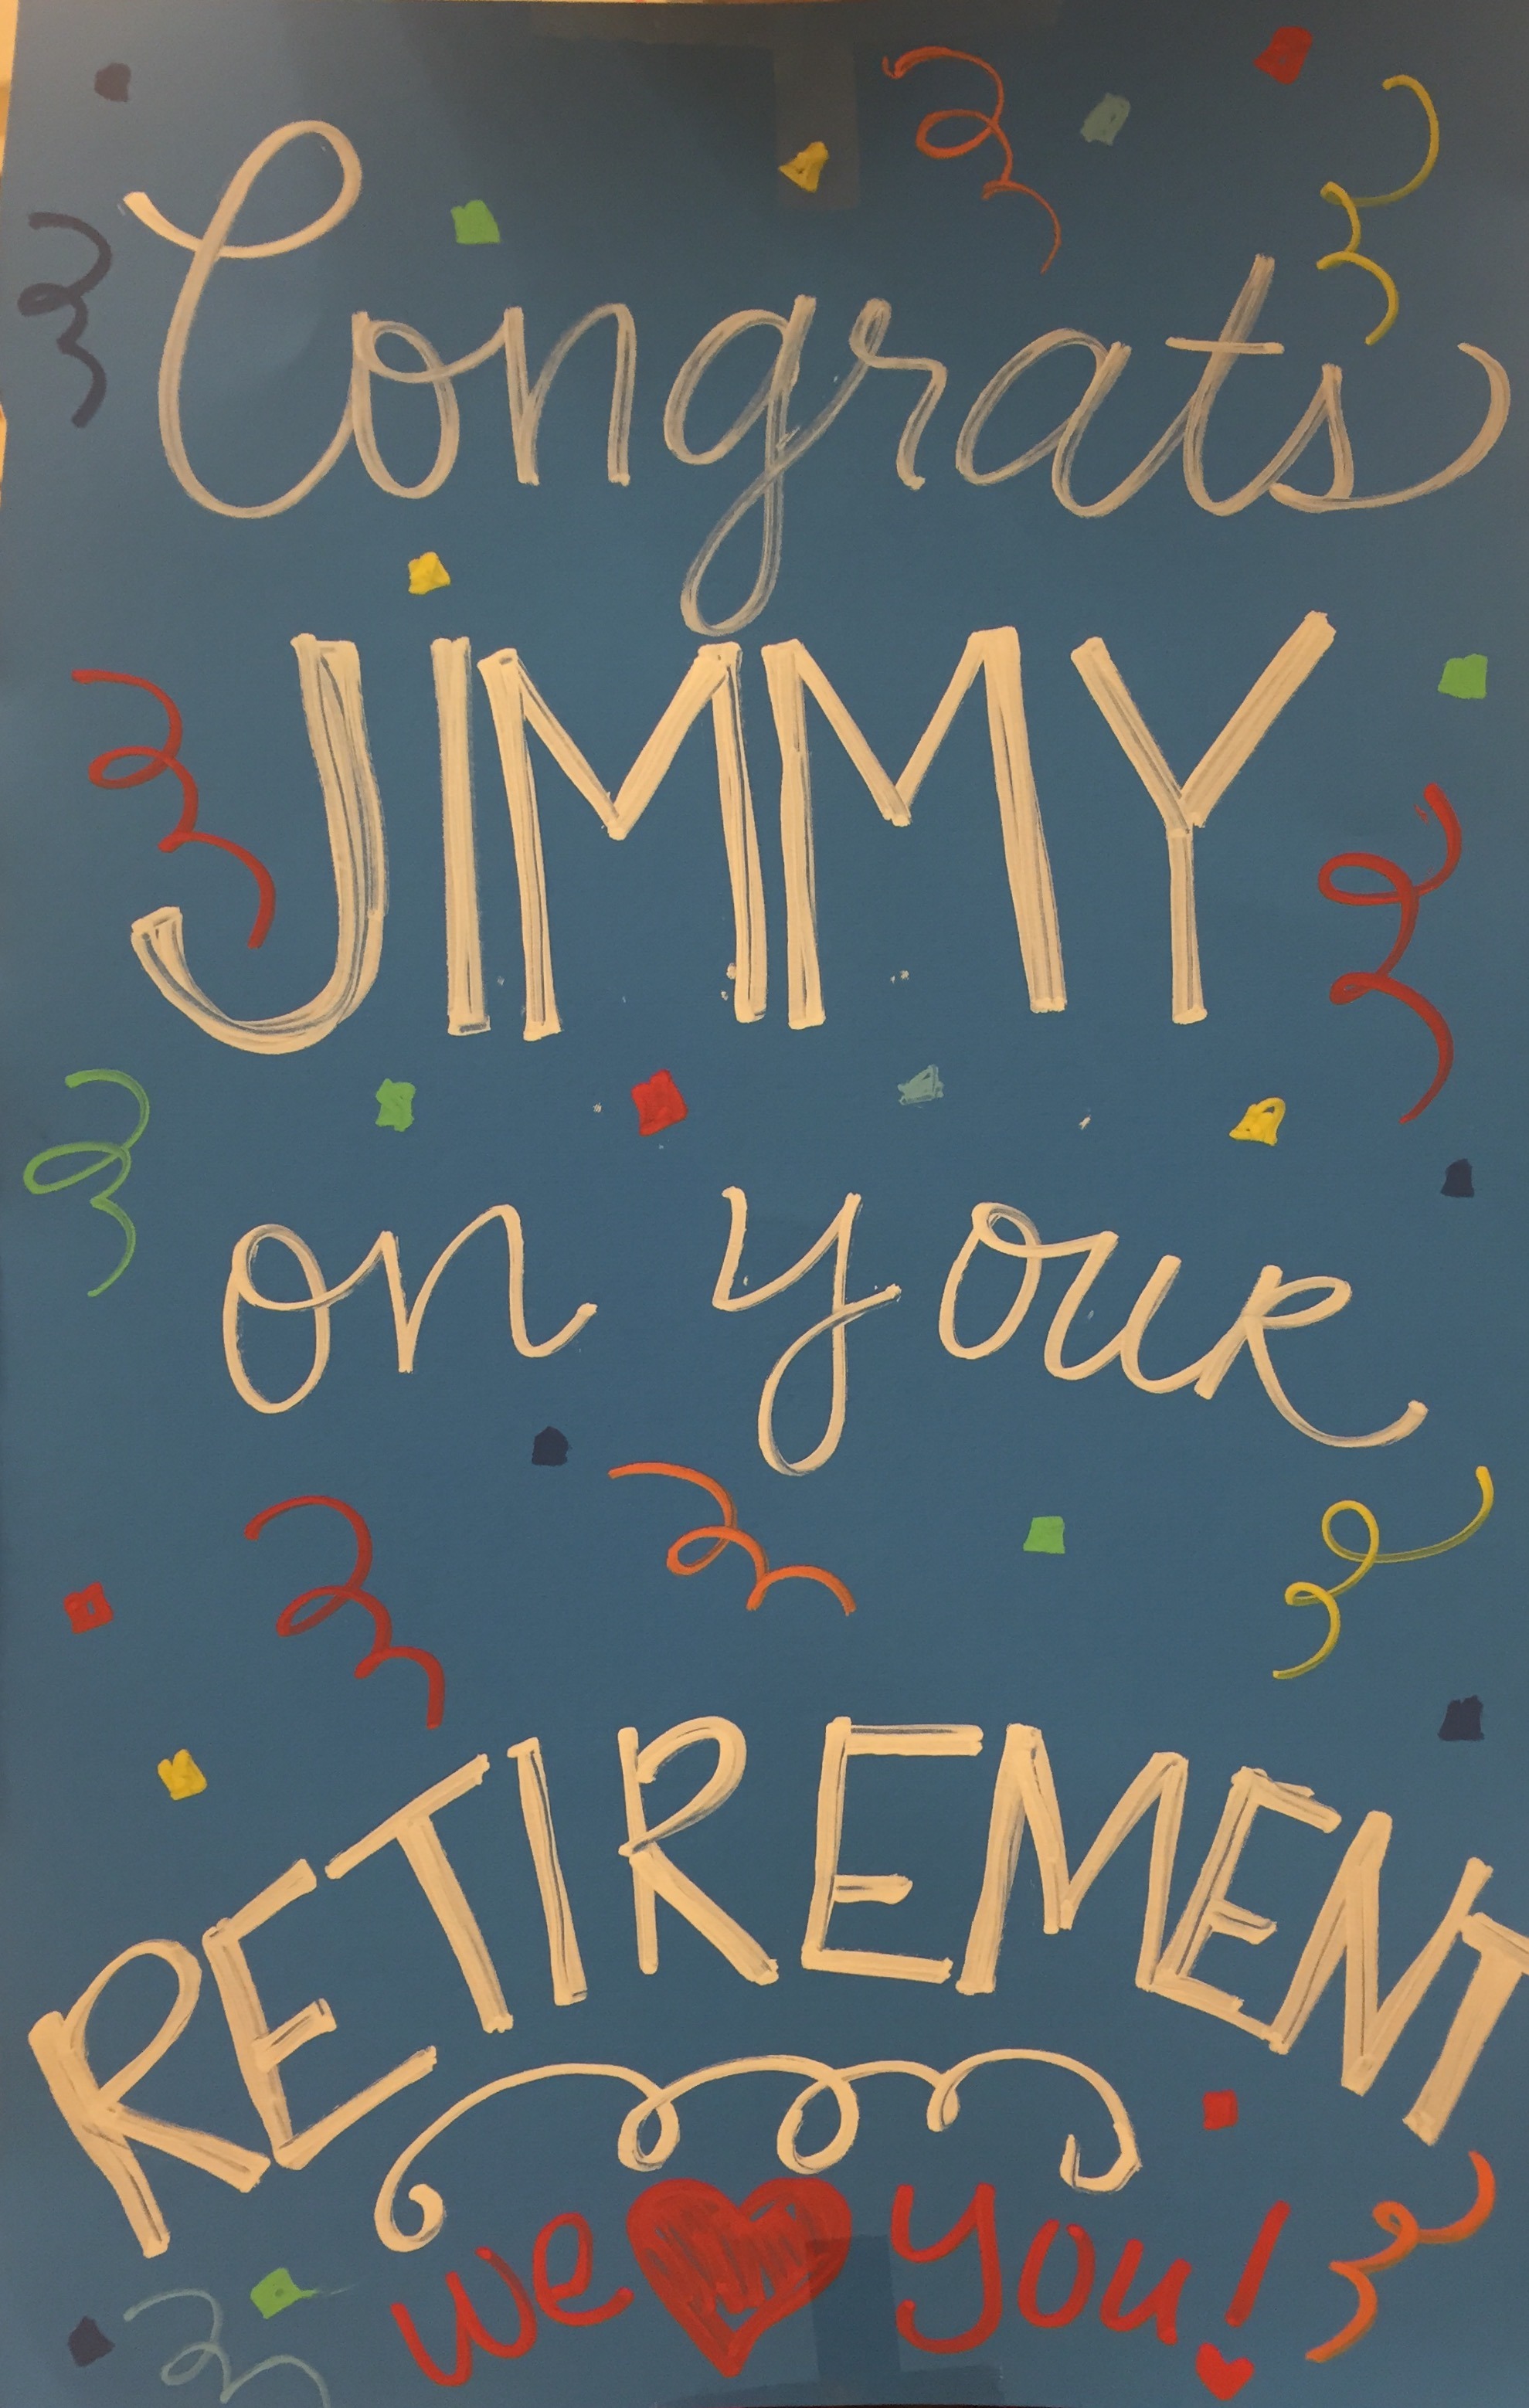 Congrats
JIMMY
on your
RETIREMENT
we ❤ you!